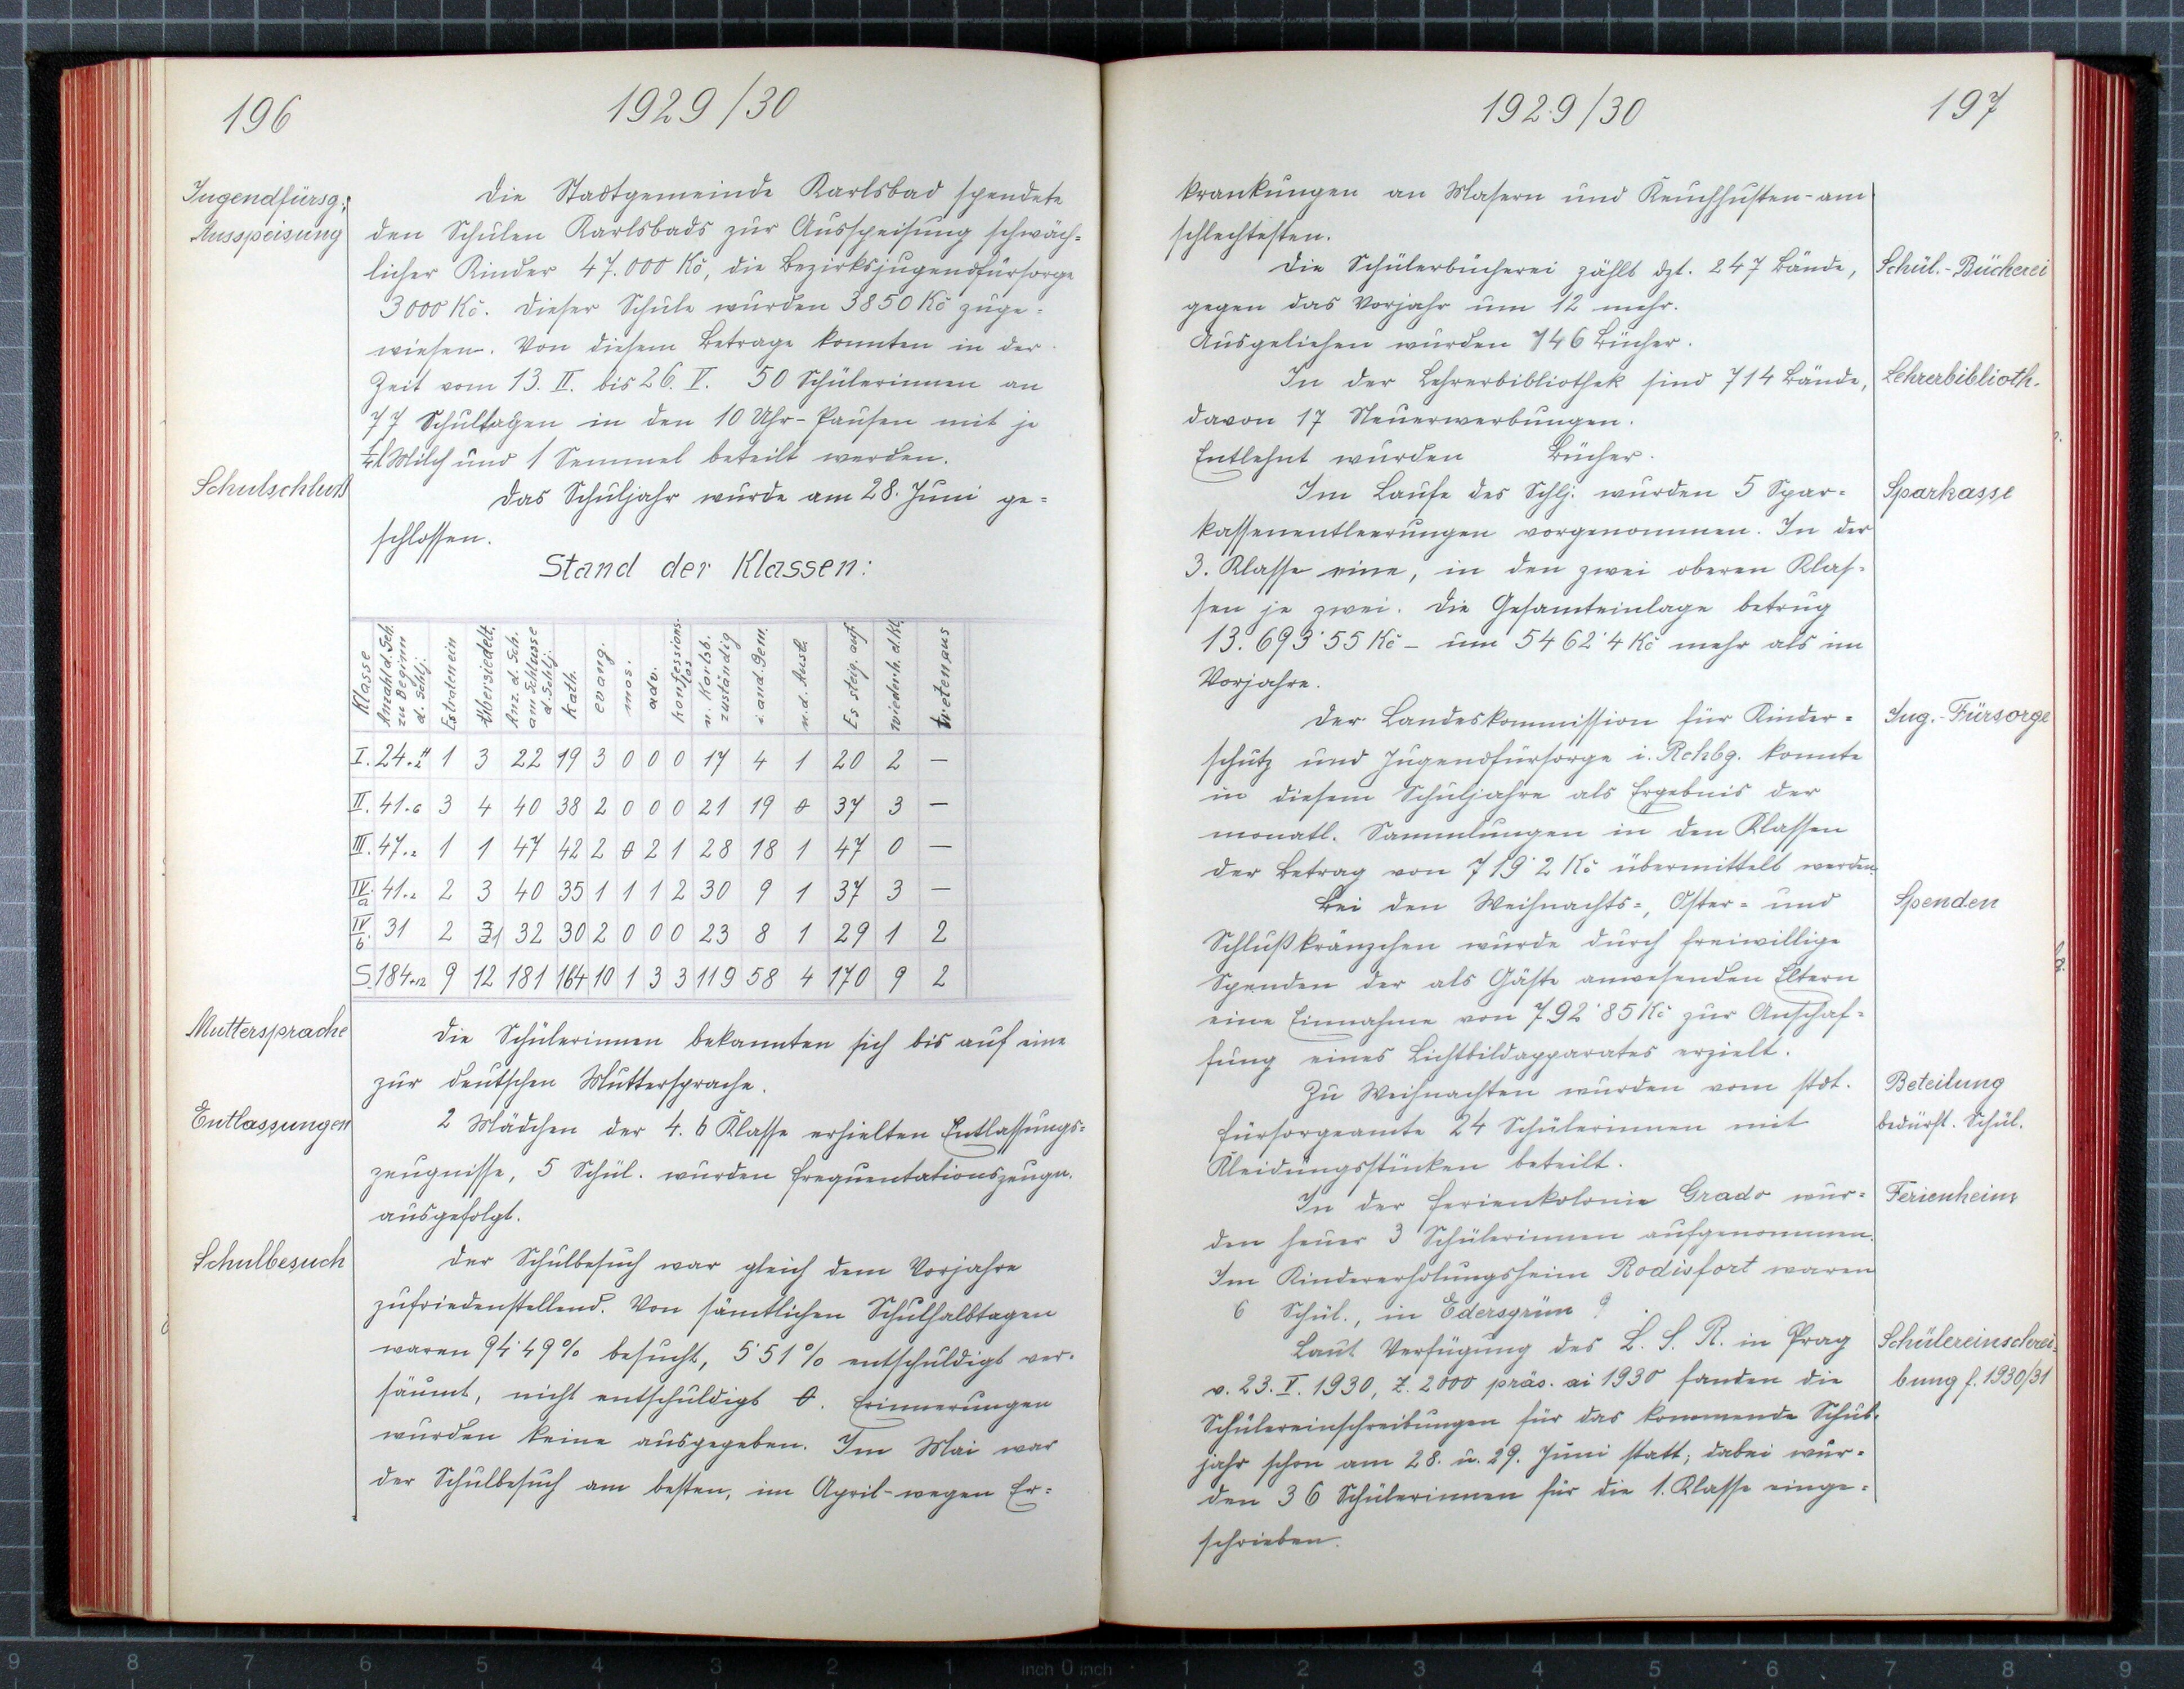 196
1929/30
Jugendfürsg.;
Ausspeisung
Die Stadtgemeinde Karlsbad spendete
den Schulen Karlsbads zur Ausspeisung schwäch-
licher Kinder 47.000 Kč, die Bezirksjugendfürsorge
3000 Kč. Dieser Schule wurden 3850 Kč zuge-
wiesen. Von diesem Betrage konnten in der
Zeit vom 13. II. bis 26. V. 50 Schülerinnen an
77 Schultagen in den 10 Uhr-Pausen mit je
¼ l Milch und 1 Semmel beteilt werden.
Schulschluß
Das Schuljahr wurde am 28. Juni ge-
schlossen.
Stand der Klassen:
Klasse | Anzahl d. Sch. zu Beginn d. Schlj. | Es traten ein | Übersiedelt. | Anz. d. Sch. am Schlusse d. Schlj. | kath. | evang. | mos. | adv. | konfessionslos | n. Karlsb. zuständig | i. and. Gem. | n. d. Ausl. | Es steig. auf | wiederh. d. Kl. | treten aus
I. 24 1 3 22 19 3 0 0 0 17 4 1 20 2 —
II. 41+6 3 4 40 38 2 0 0 0 21 19 0 37 3 —
III. 47+2 1 1 47 42 2 0 2 1 28 18 1 47 0 —
IV. a 41+2 2 3 40 35 1 1 1 2 30 9 1 37 3 —
IV. b. 31 2 1 32 30 2 0 0 0 23 8 1 29 1 2
S. 184+12 9 12 181 164 10 1 3 3 119 58 4 170 9 2
Muttersprache
Die Schülerinnen bekannten sich bis auf eine
zur deutschen Muttersprache.
Entlassungen
2 Mädchen der 4. b Klasse erhielten Entlassungs-
zeugnisse, 5 Schül. wurden Frequentationszeugn.
ausgefolgt.
Schulbesuch
Der Schulbesuch war gleich dem Vorjahre
zufriedenstellend. Von sämtlichen Schulhalbtagen
waren 94˙49% besucht, 5˙51% entschuldigt ver-
säumt, nicht entschuldigt 0. Erinnerungen
wurden keine ausgegeben. Im Mai war
der Schulbesuch am besten, im April-wegen Er-
1929/30
197
krankungen an Masern und Keuchhusten-am
schlechtesten.
Die Schülerbücherei zählt dzt. 247 Bände,
Schül.-Bücherei
gegen das Vorjahr um 12 mehr.
Ausgeliehen wurden 746 Bücher.
In der Lehrerbibliothek sind 714 Bände,
Lehrerbiblioth.
davon 17 Neuerwerbungen.
Entlehnt wurden Bücher.
Im Laufe des Schlj. wurden 5 Spar-
Sparkasse
kassenentleerungen vorgenommen. In der
3. Klasse eine, in den zwei oberen Klas-
sen je zwei. Die Gesamteinlage betrug
13.693˙55 Kč – um 5462˙4 Kč mehr als im
Vorjahre.
Der Landeskommission für Kinder-
Jug.-Fürsorge
schutz und Jugendfürsorge i. Rchbg. konnte
in diesem Schuljahre als Ergebnis der
monatl. Sammlungen in den Klassen
der Betrag von 719˙2 Kč übermittelt werden.
Bei den Weihnachts-, Oster- und
Spenden
Schlußkränzchen wurde durch freiwillige
Spenden der als Gäste anwesenden Eltern
eine Einnahme von 792˙85 Kč zur Anschaf-
fung eines Lichtbildapparates erzielt.
Zu Weihnachten wurden vom städt.
Beteilung
bedürft. Schül.
Fürsorgeamte 24 Schülerinnen mit
Kleidungsstücken beteilt.
In der Ferienkolonie Grado wur-
Ferienheim
den heuer 3 Schülerinnen aufgenommen.
Im Kindererholungsheim Rodisfort waren
6 Schül., in Edersgrün 9.
Laut Verfügung des L. S. R. in Prag
Schülereinschrei-
bung f. 1930/31
v. 23. V. 1930, Z. 2000 präs. ai 1930 fanden die
Schülereinschreibungen für das kommende Schul-
jahr schon am 28. u. 29. Juni statt; dabei wur-
den 36 Schülerinnen für die 1. Klasse einge-
schrieben.
9 8 7 6 5 4 3 2 1 inch 0 inch 1 2 3 4 5 6 7 8 9